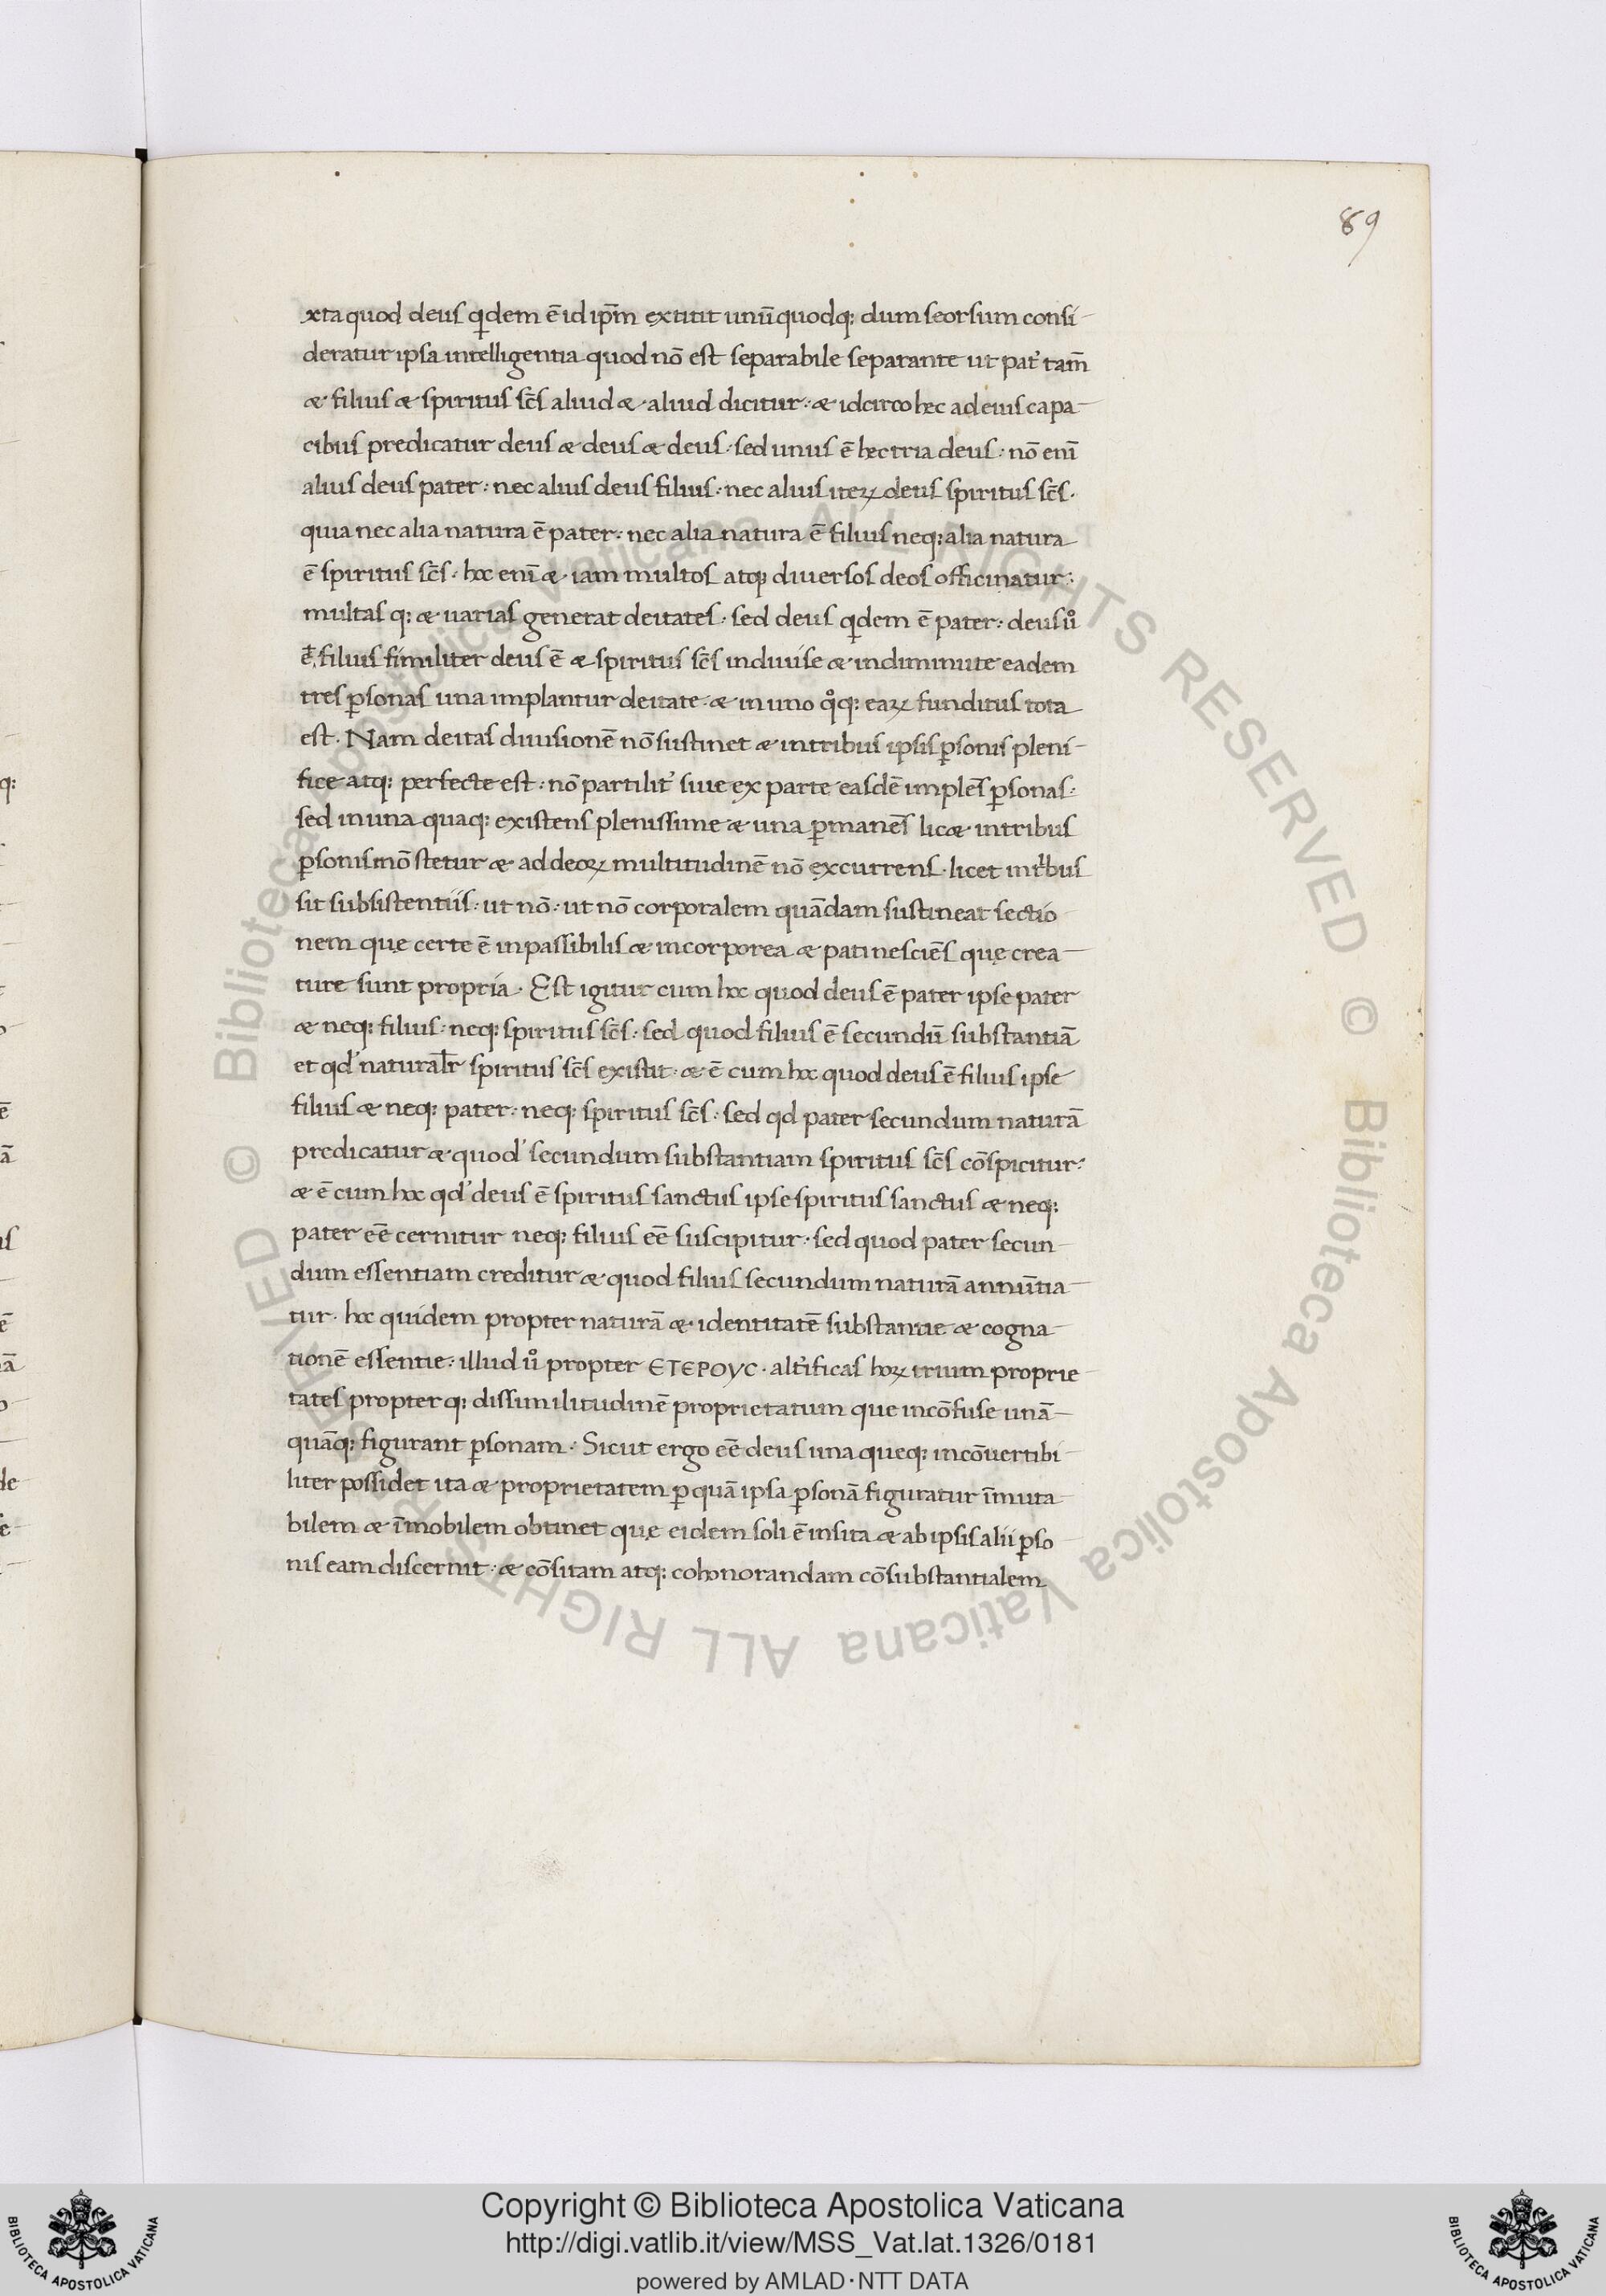 89
xta quod deus qidem ē id ip̄m extitit unū quodq; dum seorsum consi
deratur ipsa intelligentia quod nō est separabile separante ut pat̾ tam̄
æ filius æ spiritus sc̄s aliud æ aliud dicitur · æ idcirco hec ad eius capa
cibus predicatur deus æ deus æ deus · sed unus ē hec tria deus · nō enī
alius deus pater · nec alius deus filius · nec alius iteꝝ deus spiritus sc̄s ·
quia nec alia natura ē pater · nec alia natura ē filius neq; alia natura
ē spiritus sc̄s · hoc enī æ iam multos atq; diuersos deos officinatur ·
multas q; æ uarias generat deitates · sed deus qidem ē pater · deus uͦ
ē filius similiter deus ē æ spiritus sc̄s indiuise æ indiminute eadem
tres ꝑsonas una implantur deitate · æ in uno qͦq; eaꝝ funditus tota
est · Nam deitas diuisionē nō sustinet æ in tribus ipsis ꝑsonis pleni
fice atq; perfecte est · nō partilit̾ siue ex parte easdē implēs ꝑsonas ·
sed in una quaq; existens plenissime æ una ꝑmanēs licæ in tribus
ꝑsonis mōstetur æ ad deoꝝ multitudinē nō excurrens · licet in tͥbus
sit subsistentiis · ut nō · ut nō corporalem quādam sustineat sectio
nem quę certe ē inpassibilis æ incorporea æ pati nesciēs quę crea
ture sunt propria · Est igitur cum hoc quod deus ē pater ipse pater
æ neq; filius · neq; spiritus sc̄s · sed quod filius ē secundū substantiā
et qd̾ natural̄r spiritus sc̄s existit · æ ē cum hoc quod deus ē filius ipse
filius æ neq; pater · neq; spiritus sc̄s · sed qd pater secundum naturā
predicatur æ quod̾ secundum substantiam spiritus sc̄s cōspicitur ·
æ ē cum hoc qd̾ deus ē spiritus sanctus ipse spiritus sanctus æ neq;
pater eē cernitur neq; filius eē suscipitur · sed quod pater secun
dum essentiam creditur æ quod filius secundum naturā annūtia
tur · hoc quidem propter naturā æ identitatē substantie æ cogna
tionē essentie · illud uͦ propter ΕΤΕΡΟΥϹ · alt̾ificas hoꝝ trium proprie
tates propter q; dissimilitudinē proprietatum que incōfuse unā
quāq; figurant ꝑsonam · Sicut ergo eē deus una queq; incōuertibi
liter possidet ita æ proprietatem ꝑ quā ipsa ꝑsonā figuratur īmuta
bilem æ īmobilem obtinet quę eidem soli ē insita æ ab ipsis alii ꝑso
nis eam discernit · æ cōsitam atq; cohonorandam cōsubstantialem
Copyright © Biblioteca Apostolica Vaticana
http://digi.vatlib.it/view/MSS_Vat.lat.1326/0181
powered by AMLAD·NTT DATA